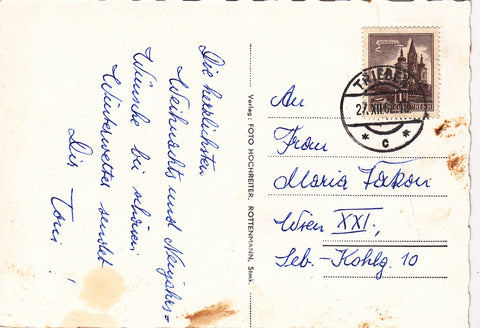 Die herrlichsten
Weihnachts und Neujahrs=
Wünsche bei schönem
Winterwetter sendet
Dir Toni!
Verlag: FOTO HOCHREITER, ROTTENMANN, Stmk.
TRIEBEN
27.XII.
* c *
An
Frau
Maria
Wien XXI.,
Seb.-Kohlg. 10